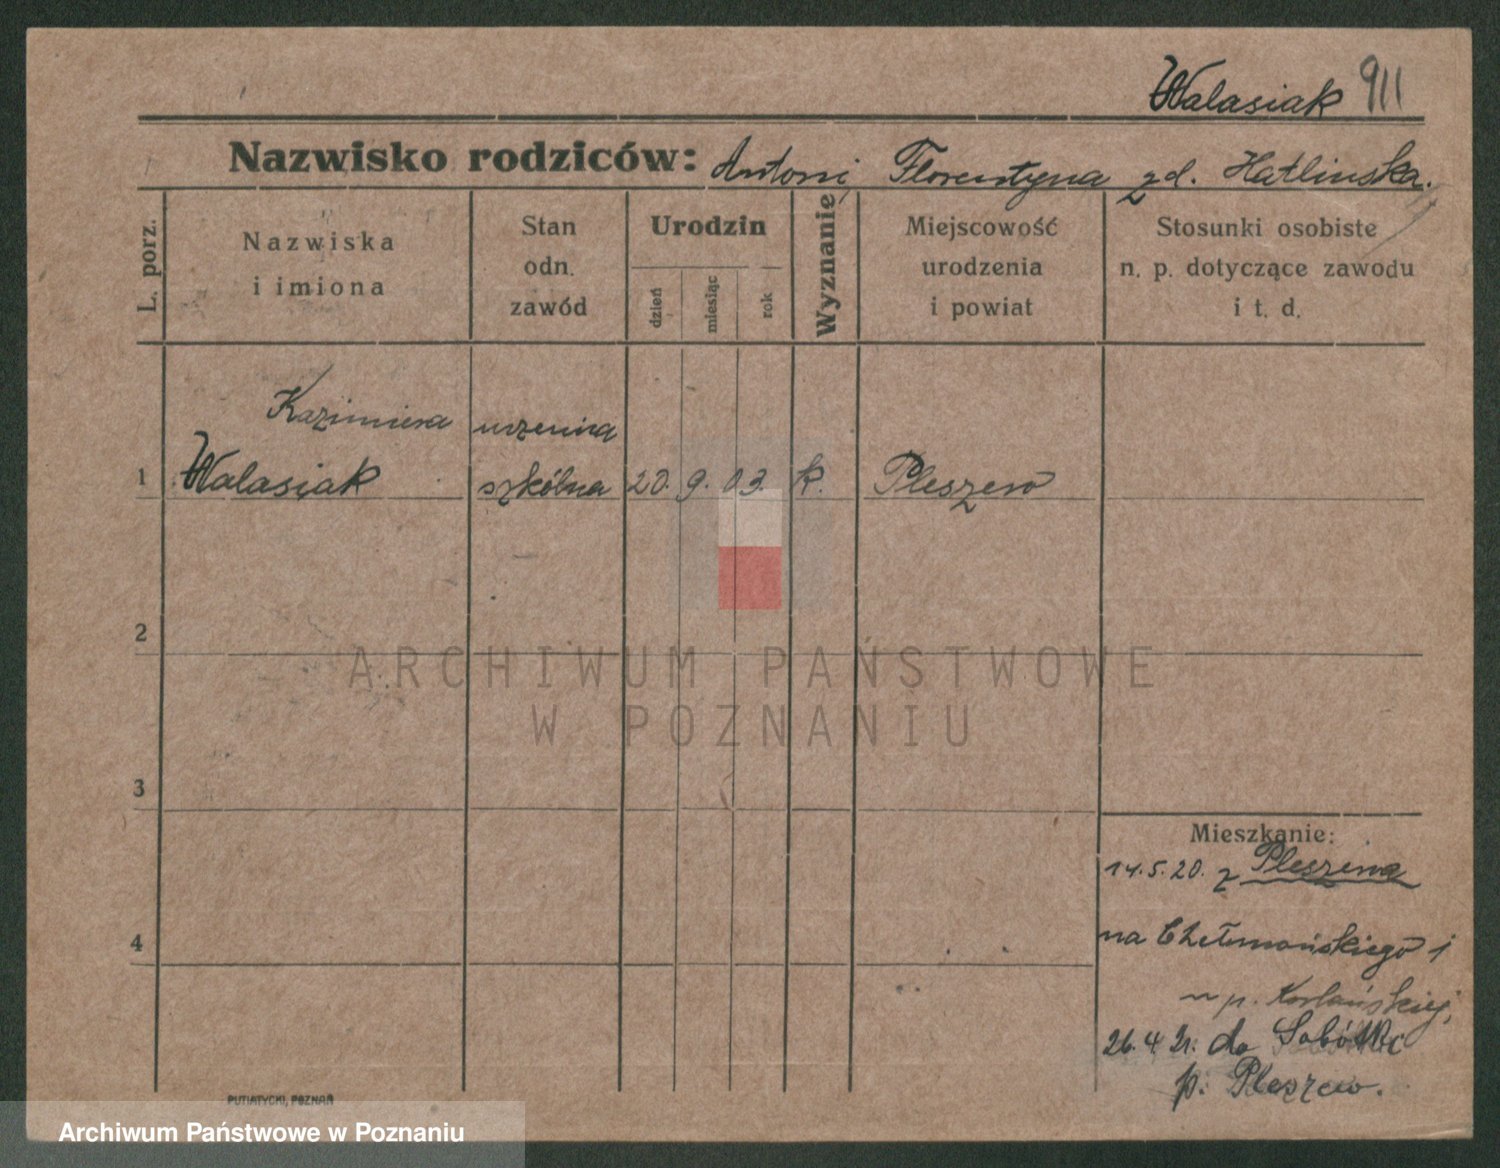 Walasiak 911
Nazwisko rodziców: Antoni Florentyna zd. Hatlinska.
L. porz.
Nazwiska
i imiona
Stan
odn.
zawód
Urodzin
dzień
miesiąc
rok
Wyznanie
Miejscowość
urodzenia
i powiat
Stosunki osobiste
n. p. dotyczące zawodu
i t. d.
Kazimiera uczenica
1 Walasiak szkólna 20. 9. 03. k. Pleszew
2
ARCHIWUM PAŃSTWOWE
W POZNANIU
3
Mieszkanie:
14.5.20. z Pleszewa
4
na Chełmońskiego 1
u p.
26.4.21. do Sobótka
p. Pleszew.
PUTIATYCKI, POZNAŃ
Archiwum Państwowe w Poznaniu